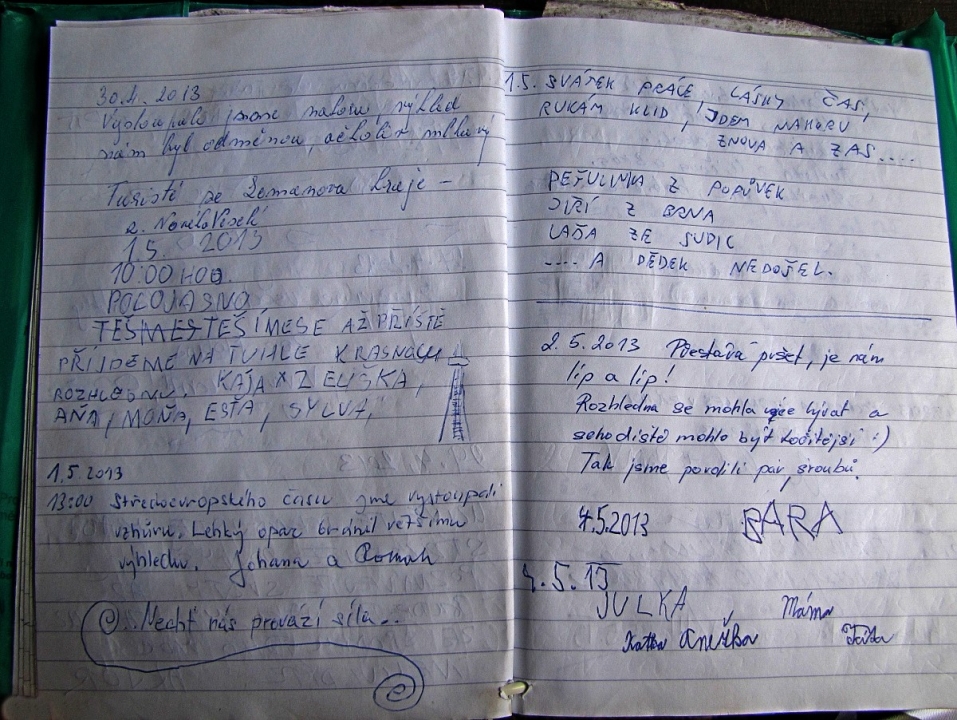 30.4. 2013
Vystoupali jsme nahoru výhled
nám byl odměnou, ačkoliv mlhavý
Turisté ze Zemanova kraje –
z Nového Veselí
1.5 2013
10:00 HOD
POLOJASNO
TĚŠMESTEŠÍMESE AŽ PŘÍŠTĚ
PŘÍJDEME NA TUHLE KRASNOU
ROZHLEDNU. KÁJA X 2 ELIŠKA,
AŇA, MOŇA, ESŤA, SYLVA,
1.5.2013
13:00 Středoevropského času jme vystoupali
vzhůru. Lehký opar bránil většímu
výhledu. Johana a Roman
Nechť nás provází síla...
1.5. SVÁTEK PRÁCE, LÁSKY ČAS,
RUKÁM KLID, JDEM NAHORU
ZNOVA A ZAS....
PEŤULINKA Z POPŮVEK
JIŘÍ Z BRNA
LAĎA ZE SUDIC
.... A DĚDEK NEDOŠEL.
2.5.2013 Přestává pršet, je nám
líp a líp!
Rozhledna se mohla více hývat a
schodiště mohlo být točitější :)
Tak jsme povolili pár šroubů.
4.5.2013 BÁRA
4.5.13
JULKA Máma
Katka Anežka Táta